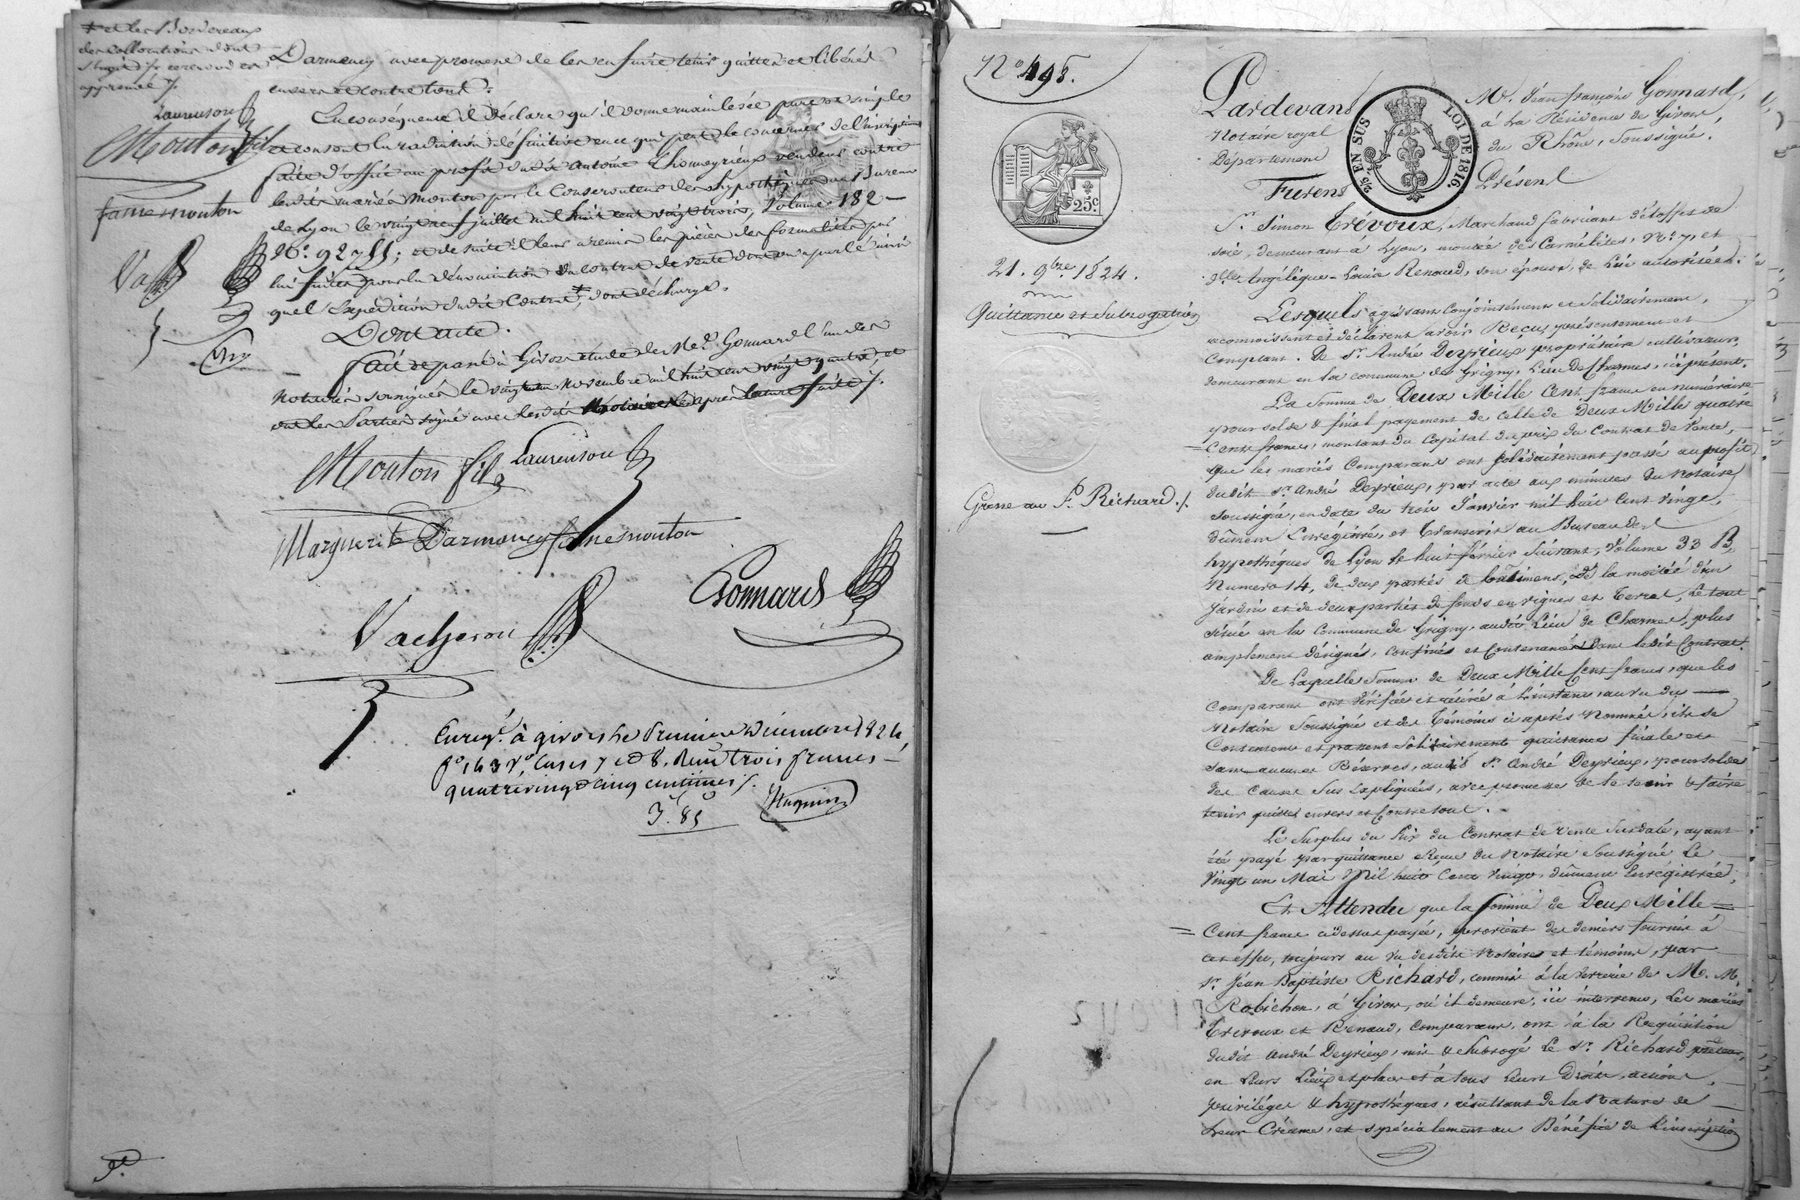 * et les Bordereaux
des collocations dont
approuvé /.
Laurenson
Mouton fils
fame mouton
Va
Darmancy avec promesse de les en faire tenir quittes et libérés
envers et contre tous.
En conséquence il déclare qu'il donne mainlevée pure et simple
et consent la radiation définitive en ce qui peut le concerner de l'inscription
faite d'office au profit dudit antoine Thomeyrieux vendeur contre
lesdits mariés Mouton par le Conservateur des hypothèques au Bureau
de Lyon le vingt neuf juillet mil huit cent vingt trois, Volume 182
N°. 92755; et de suite il leur a remis les pièces des formalités par
lui faites pour la dénonciation du contrat de vente dont on a parlé ainsi
que l'Expédition dudit Contrat,* dont décharge.
Dont acte.
fait et passé à Givors étude de Me. Gonnard l'un des
Notaires soussignés le vingt un novembre mil huit cent vingt quatre, et
ont les Parties signé avec lesdits Notaires après lecture faite /.
Mouton fils Laurenson
Marguerite Darmancy fame mouton
Gonnard
Vacheron
Enregé. à givors le Premier Décembre 1824,
f° 163 v°, Cases 7 et 8. Reçu trois francs
quatre vingt cinq centimes /.
3. 85
Huguin
N° 495.
25 c
21. 9bre. 1824.
Quittance et Subrogation
Grosse au Sr. Richard. /.
Pardevant Me. Jean françois Gonnard,
Notaire royal à la Résidence de Givors
Département du Rhône, soussigné.
25c EN SUS LOI DE 1816
Furent Présents
Sr. Simon Trévoux, Marchand fabricant d'étoffes de
soie, demeurant à Lyon, montée des Carmélites, N°. 7, et
dlle. Angélique-Louise Renaud, son épouse, de Lui autorisée.
Lesquels agissant Conjointement et Solidairement,
reconnoissent et déclarent avoir Reçu présentement et
Comptant. De Sr. André Deyrieux propriétaire cultivateur,
demeurant en la commune de Grigny, Lieu de Charmes, ici présent.
La Somme de Deux Mille Cent francs en numéraire
pour solde & final payement de celle de Deux Mille quatre
Cents francs, montant du Capital du prix du Contrat de Vente,
que les mariés Comparants ont solidairement passé au profit
dudit Sr. André Deyrieux, par acte aux minutes du Notaire
soussigné, en date du trois Janvier mil huit Cent vingt,
dûment Enrégistré, et transcrit au Bureau des
hypothéques de Lyon le huit février suivant, Volume 33 B,
Numéro 14, de deux parties de bâtimens, de la moitié d'un
Jardin et de deux parties de fonds en vignes et terre, le tout
situé en la Commune de Grigny, audit Lieu de Charmes, plus
amplement désignés, confinés et Contenancés dans ledit Contrat.
De Laquelle Somme de Deux Mille Cent francs, que les
Comparants ont vérifiée et retirée à l'instant, au vu du
Notaire Soussigné et des témoins ci après Nommés, ils se
Contentent et passent Solidairement quittance finale et
sans aucunes Réserves, audit Sr. André Deyrieux, pour solde
des Causes Sus Expliquées, avec promesse de le tenir & faire
tenir quitte envers et Contre tous.
Le Surplus du Prix du Contrat de Vente Susdaté, ayant
été payé par quittance Reçue du Notaire Soussigné Le
Vingt un Mai Mil huit Cent Vingt, dûment Enrégistrée,
Et Attendu que la Somme de Deux Mille
Cent francs cidessus payée, provient de deniers fournis à
cet effet, toujours au Vu desdits Notaires et témoins, par
Sr. Jean Baptiste Richard, commis à la Verrerie de M. M.
Robichon, à Givors, où il demeure, ici intervenu, Les mariés
Trévoux et Renaud, comparants, ont à la Requisition
dudit André Deyrieux, mis & subrogé Le Sr. Richard prêteur,
en Leurs Lieux et place et à tous Leurs Droits, actions,
priviléges & hypothéques, résultant de la Nature de
Leur Créance, et spécialement au Bénéfice de l'inscription